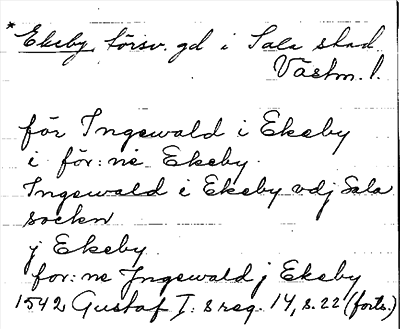 *Ekeby, försv. gd i Sala stad
Västm. l.
för Ingewald i Ekeby
i för:ne Ekeby.
Ingewald i Ekeby vdj Sala
socken
j Ekeby.
for:ne Jngewald j Ekeby
1542 Gustaf I:s reg. 14, s. 22 (forts.)